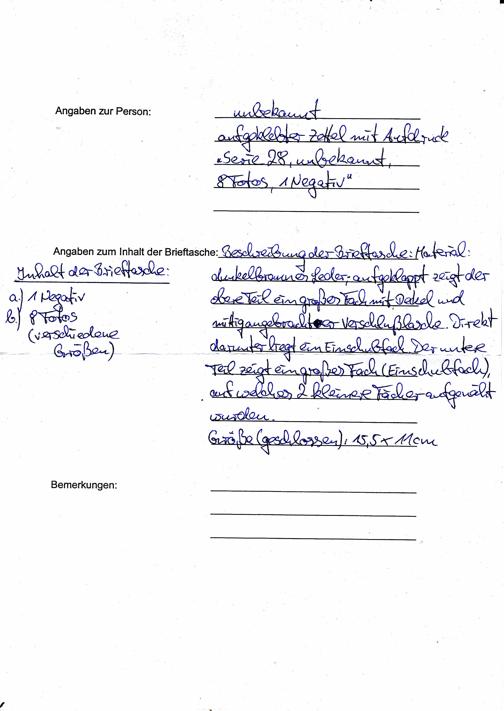 Angaben zur Person:
unbekannt
aufgeklebter Zettel mit Aufdruck
"Serie 28, unbekannt,
8 Fotos, 1 Negativ"
Angaben zum Inhalt der Brieftasche:
Inhalt der Brieftasche:
a) 1 Negativ
b) 8 Fotos
(verschiedene
Größen)
Beschreibung der Brieftasche: Material:
dunkelbraunes Leder, aufgeklappt zeigt der
obere Teil ein großes Fach mit Deckel und
mittig angebrachter Verschlußlasche. Direkt
darunter liegt ein Einschubfach. Der untere
Teil zeigt ein großes Fach (Einschubfach),
auf welches 2 kleinere Fächer aufgenäht
wurden.
Größe (geschlossen): 15,5 x 11cm
Bemerkungen: